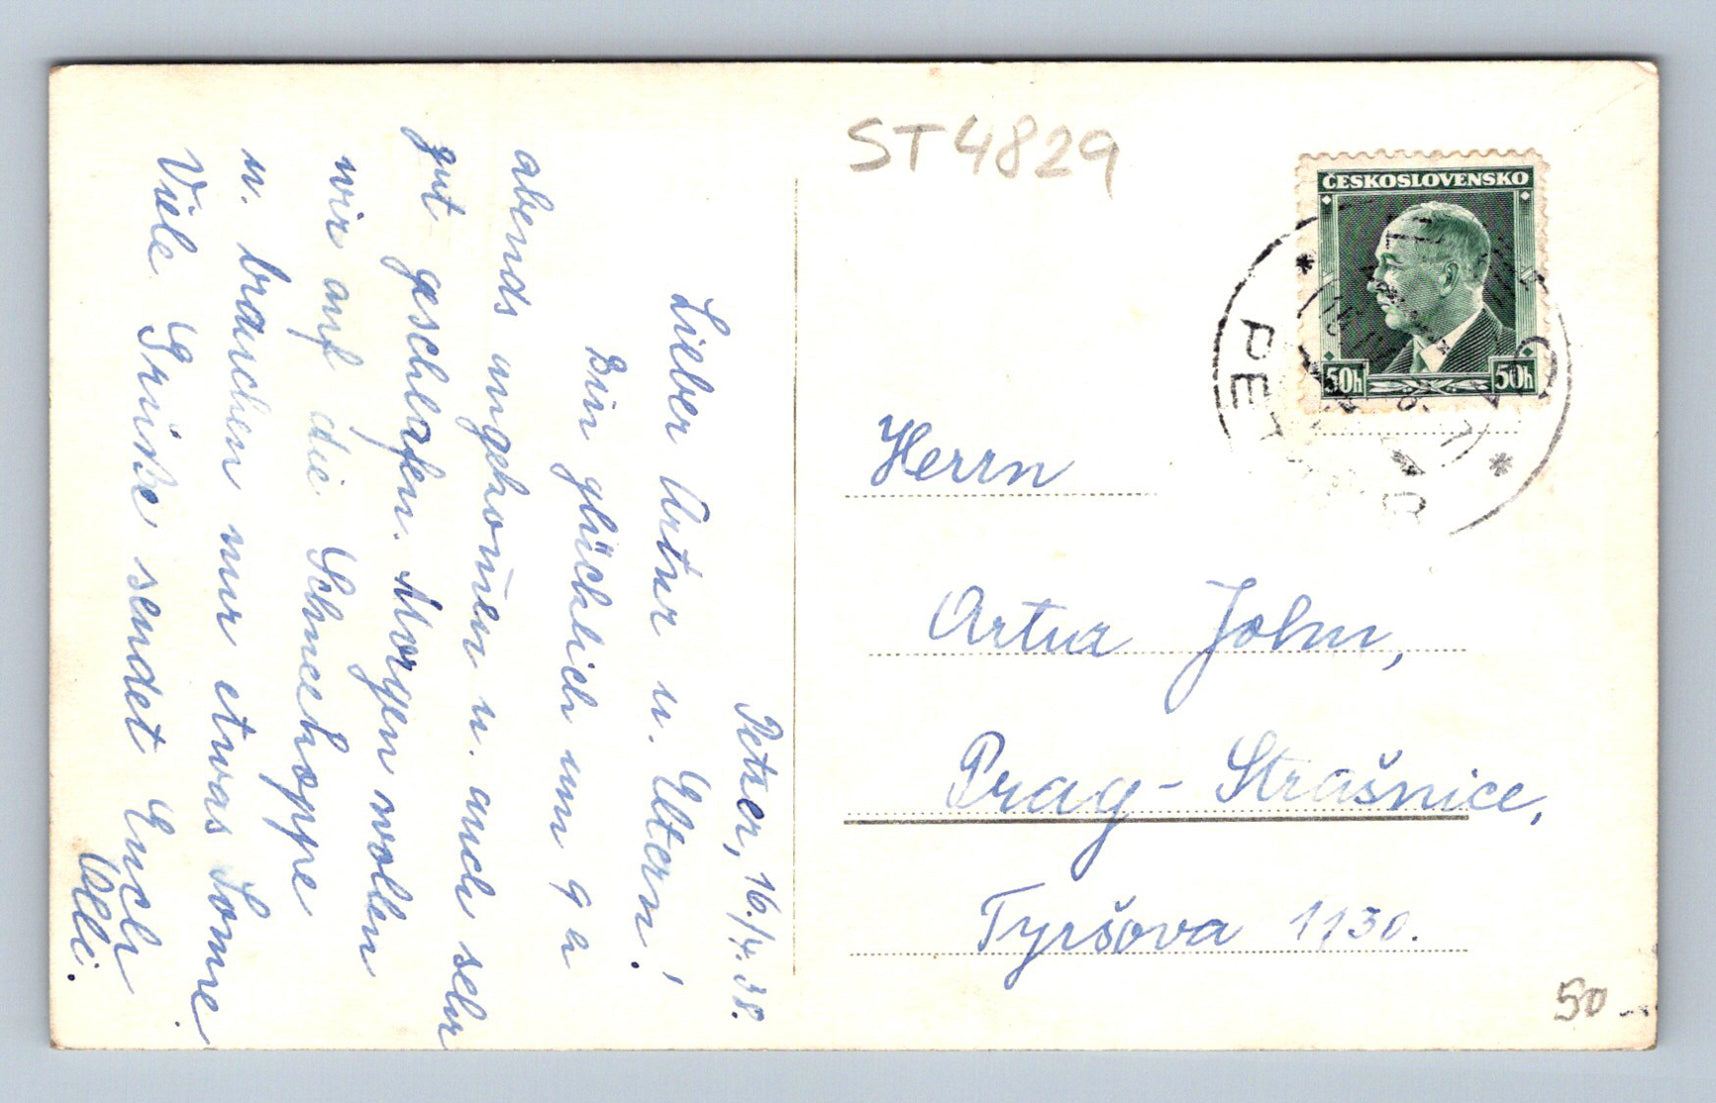 ST4829
ČESKOSLOVENSKO
50h 50h
PE
Petzer, 16./4. 38.
Lieber Artur u. Eltern!
Bin glücklich um 9 h
abends angekom̄en u. auch sehr
gut geschlafen. Morgen wollen
wir auf die Schneekoppe
u. brauchen nur etwas Sonne.
Viele Grüße sendet Euch
Olli.
Herrn
Artur John,
Prag - Strašnice,
Tyršova 1130.
50